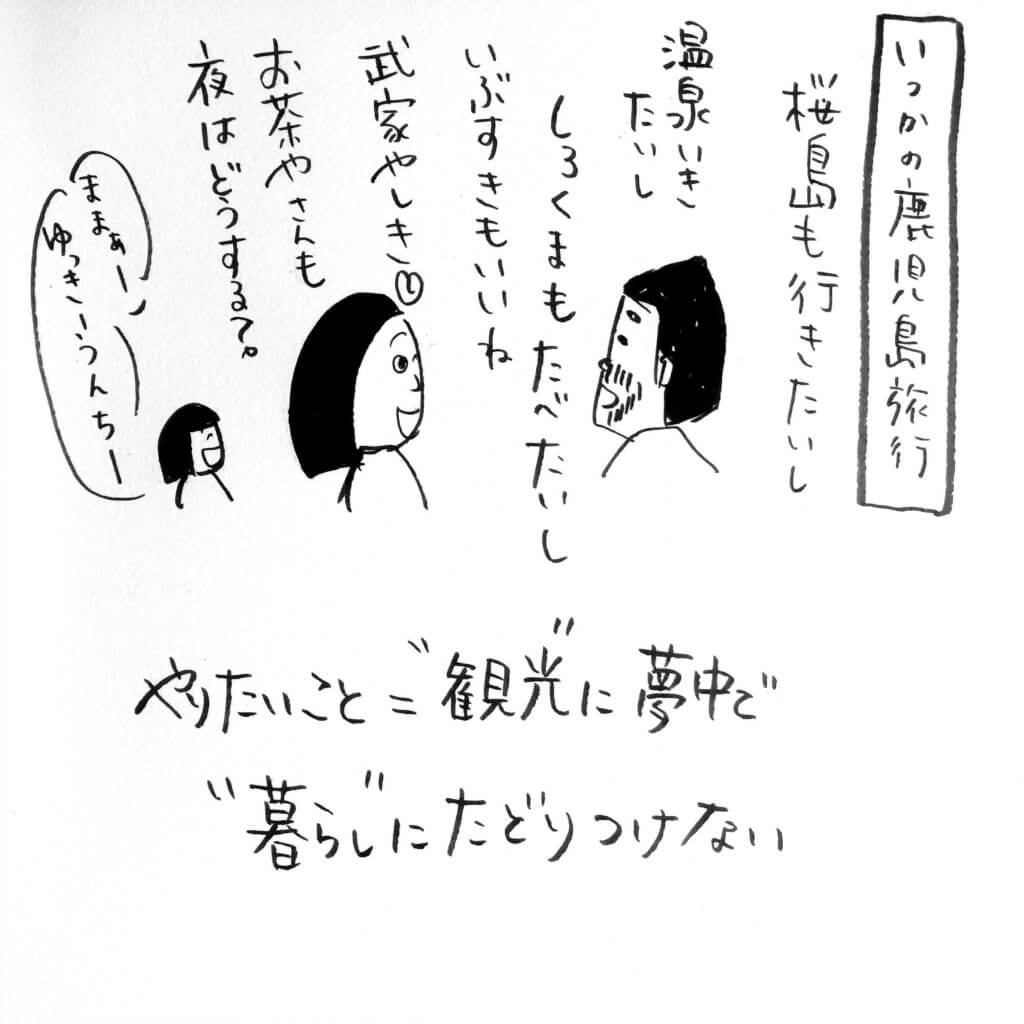 いつかの鹿児島旅行
桜島も行きたいし
温泉いき
たいし
しろくまもたべたいし
いぶすきもいいね
武家やしき
お茶やさんも
夜はどうする?。
ままぁー
ゆっきーうんちー
やりたいこと="観光"に夢中で
"暮らし"にたどりつけない